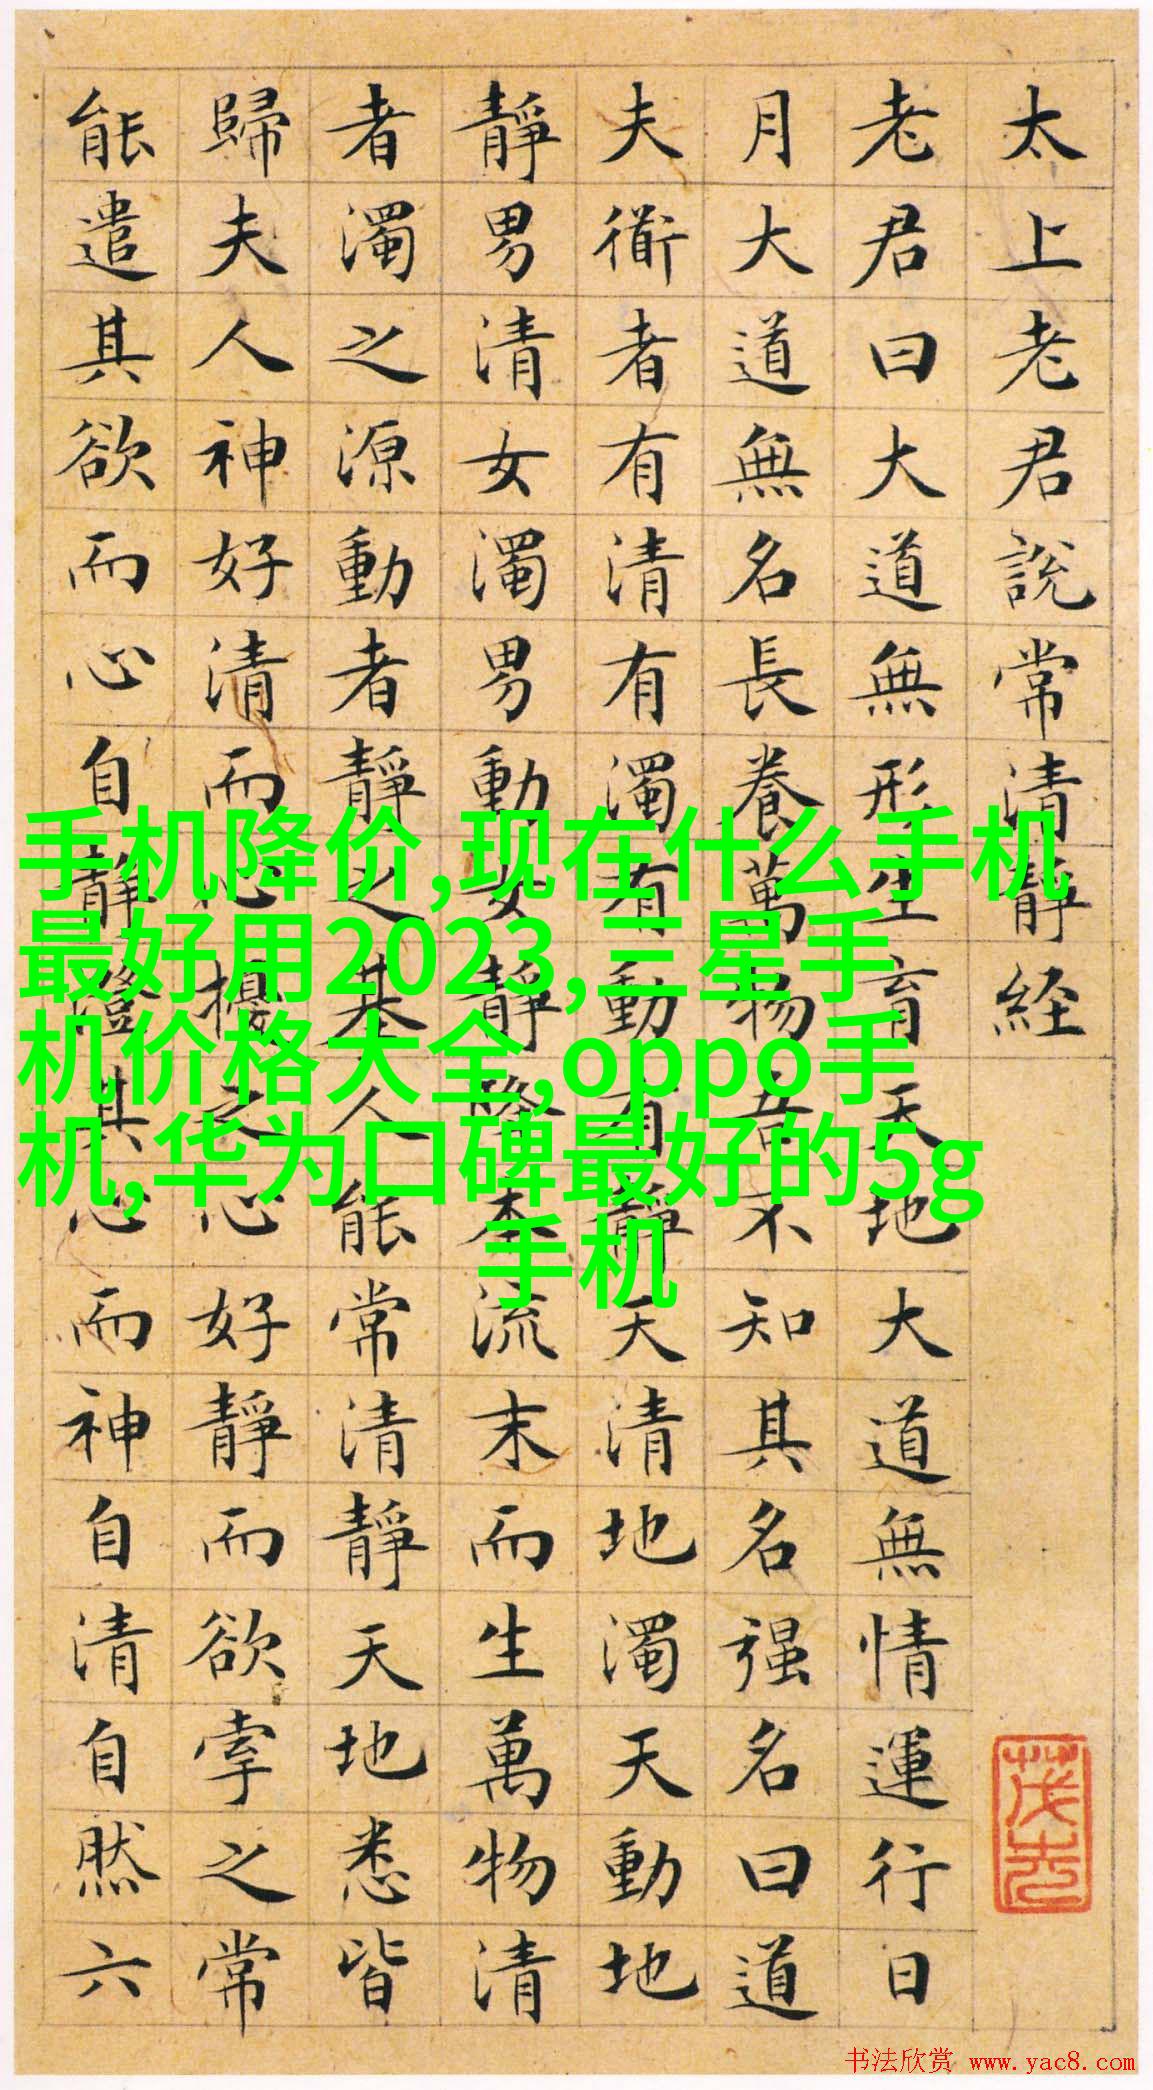 太上老君說常清靜経
老君曰大道無形生育天地大道無情運行日
月大道無名長養萬物吾不知其名强名曰道
夫衜者有清有濁有動有靜天清地濁天動地
靜男清女濁男動女靜降本流末而生萬物清
者濁之源動者靜之基人能常清靜天地悉皆
歸夫人神好清而心擾之心好靜而欲牽之常
能遣其欲而心自靜澄其心而神自清自然六
手机降价,现在什么手机
最好用2023,三星手
机价格大全,oppo手
机,华为口碑最好的5g
手机
书法欣赏 www.yac8.com